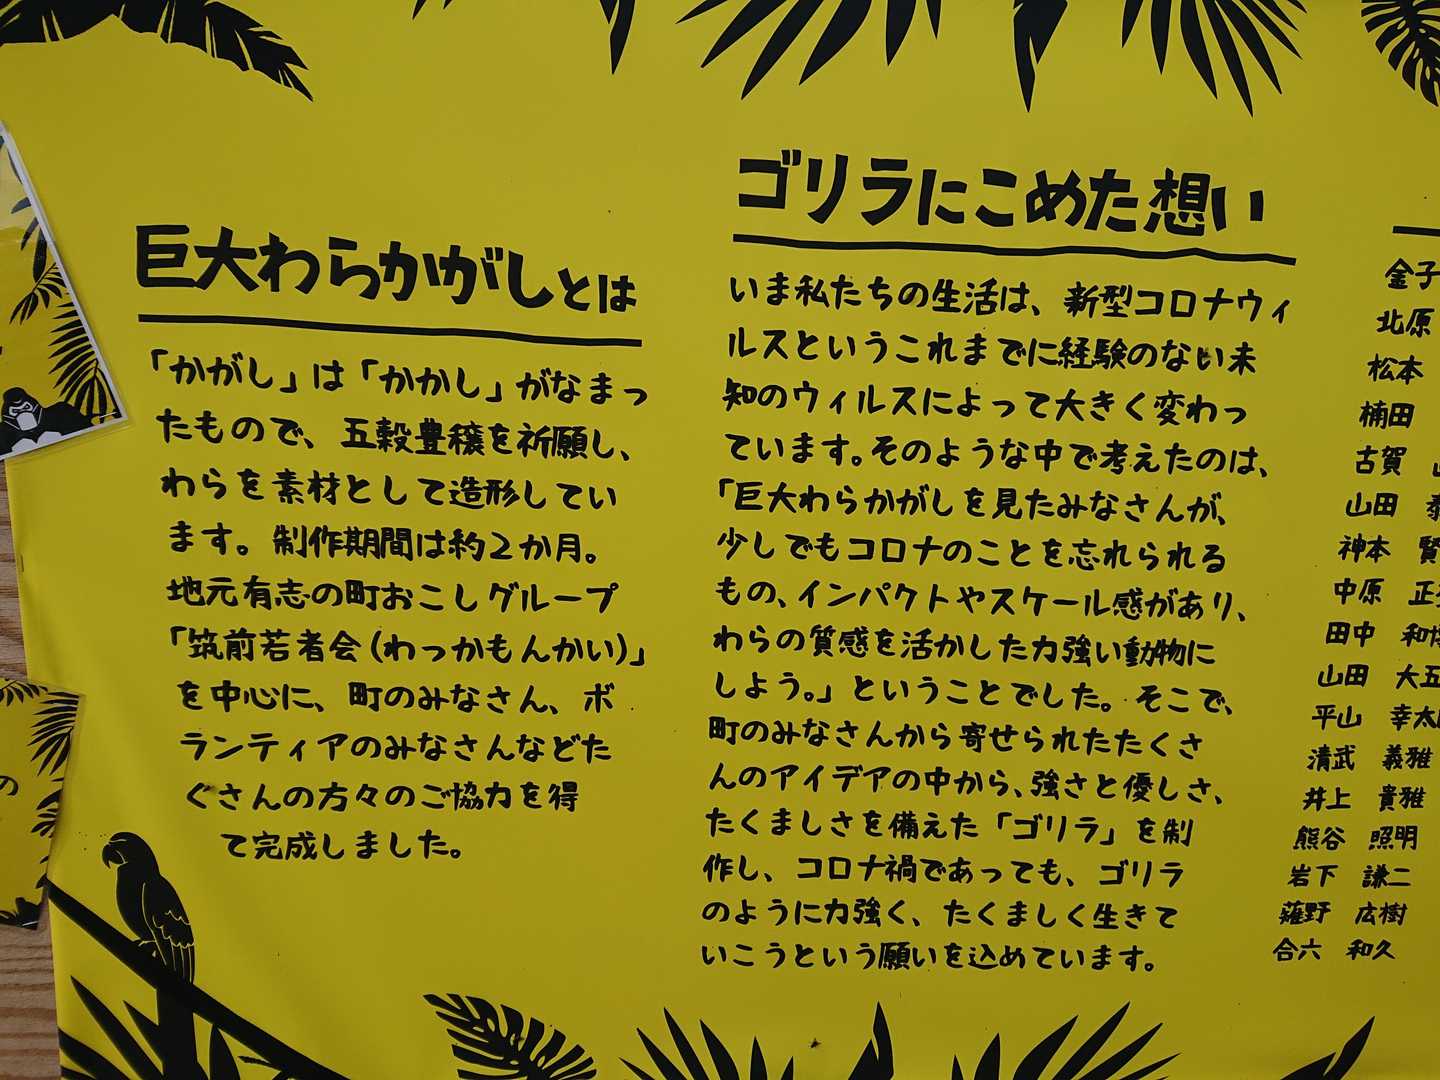 巨大わらかがしとは
「かがし」は「かかし」がなまっ
たもので、五穀豊穣を祈願し、
わらを素材として造形してい
ます。制作期間は約2か月。
地元有志の町おこしグループ
「筑前若者会(わっかもんかい)」
を中心に、町のみなさん、ボ
ランティアのみなさんなどた
くさんの方々のご協力を得
て完成しました。
ゴリラにこめた想い
いま私たちの生活は、新型コロナウィ
ルスというこれまでに経験のない未
知のウィルスによって大きく変わっ
ています。そのような中で考えたのは、
「巨大わらかがしを見たみなさんが、
少しでもコロナのことを忘れられる
もの、インパクトやスケール感があり、
わらの質感を活かした力強い動物に
しよう。」ということでした。そこで、
町のみなさんから寄せられたたくさ
んのアイデアの中から、強さと優しさ、
たくましさを備えた「ゴリラ」を制
作し、コロナ禍であっても、ゴリラ
のように力強く、たくましく生きて
いこうという願いを込めています。
金子
北原
松本
楠田
古賀
山田
神本 賢
中原 正
田中 和博
山田 大五
平山 幸太
清武 義雅
井上 貴雅
熊谷 照明
岩下 謙二
薙野 広樹
合六 和久
の